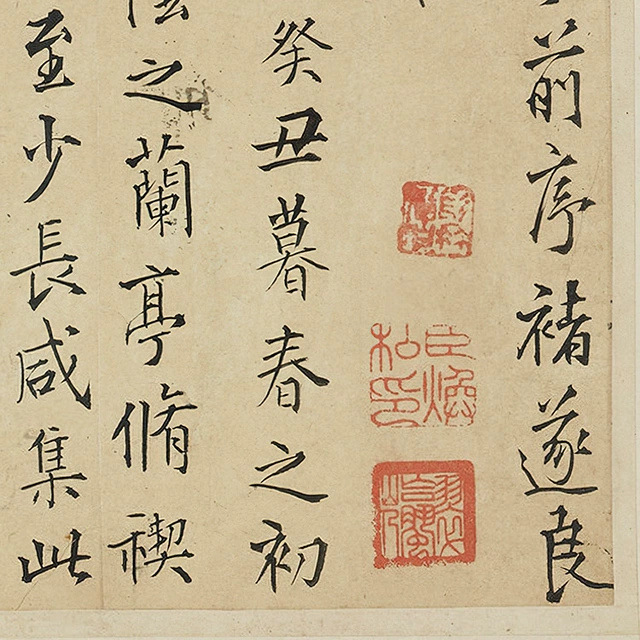 前序褚遂良
癸丑暮春之初
之蘭亭脩禊
至少長咸集此